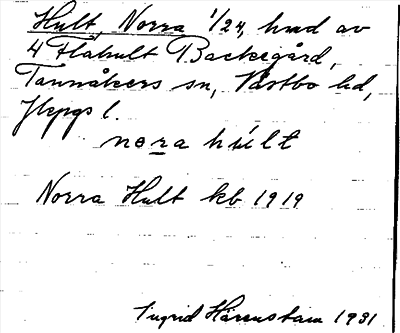 Hult, Norra 1/24, hmd av
4 Flahult Backegård,
Tannåkers sn, Västbo hd,
Jkpgs l.
nora húlt
Norra Hult kb 1919
Ingrid Härenstam 1931